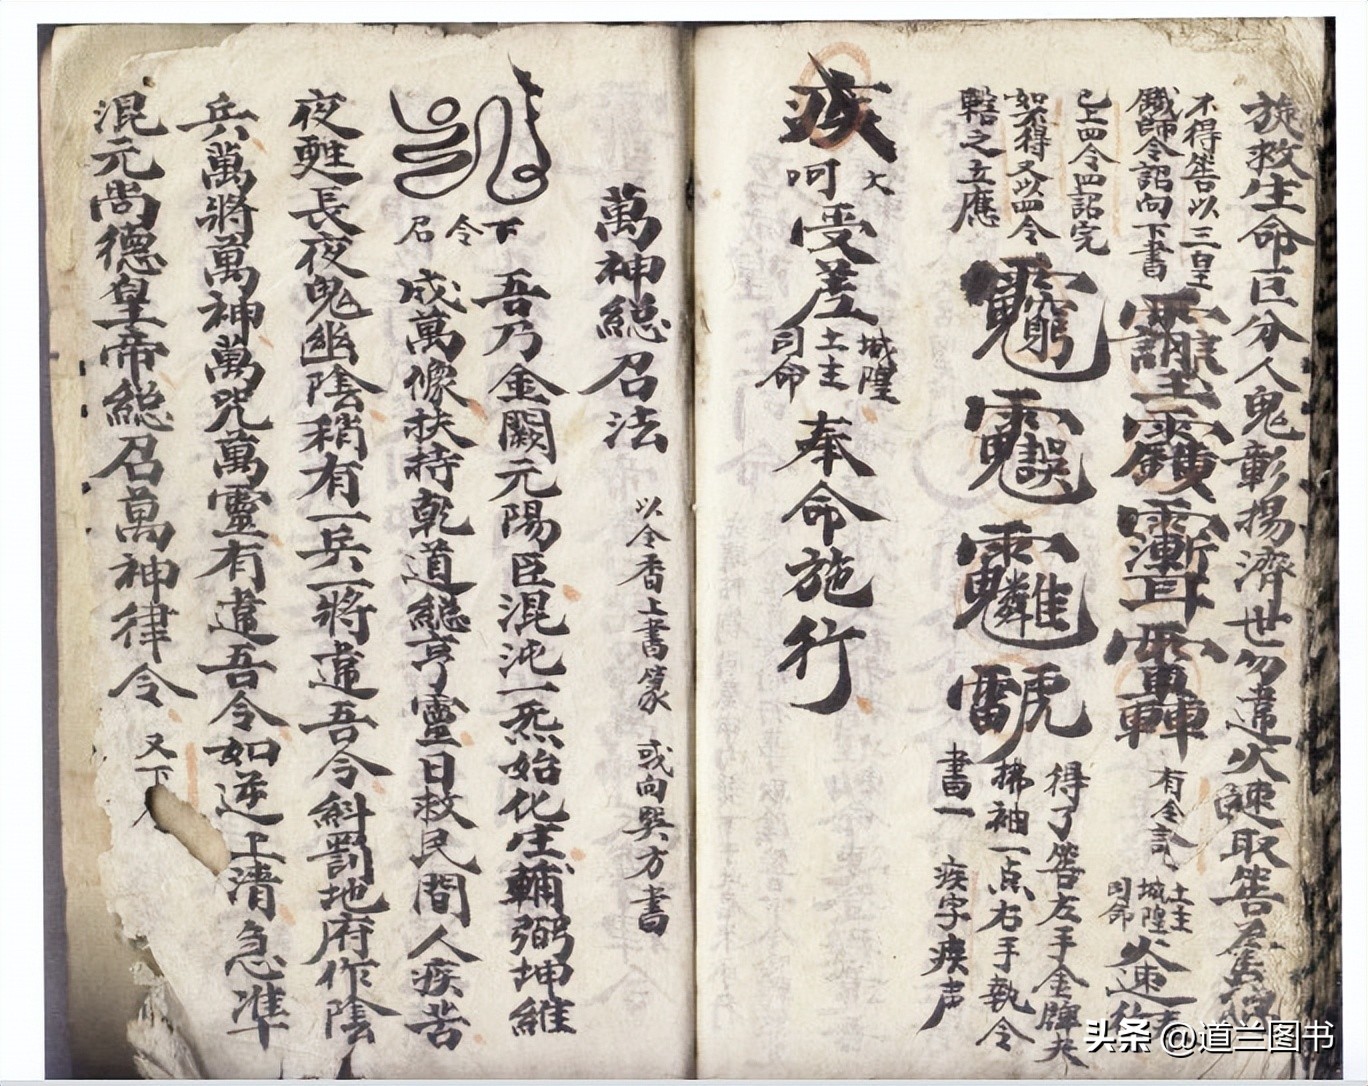 旋救生命巨分人鬼彰揚濟世勿違火速取筶
不得筶以三皇
鐵師令詔向下書
有令
土主
城隍
司命
火速
已上四令四詔完
如不得又以四令
轄之立應
得了筶左手金牌
拂袖一点右手執令
書一 疾字疾声
疾
大
呵
受差
城隍
土主
司命
奉命施行
萬神総召法
以令香上書篆 或向巽方書
下令召
吾乃金闕元陽臣混沌一炁始化生輔弼坤維
成萬像扶持乾道総亨靈日救民間人疾苦
夜魁長夜鬼幽陰稍有一兵一將違吾令糾罰地府作陰
兵萬將萬神萬咒萬靈有違吾令如逆上清急準
混元尚德皇帝総召萬神律令
又下
头条 @道兰图书